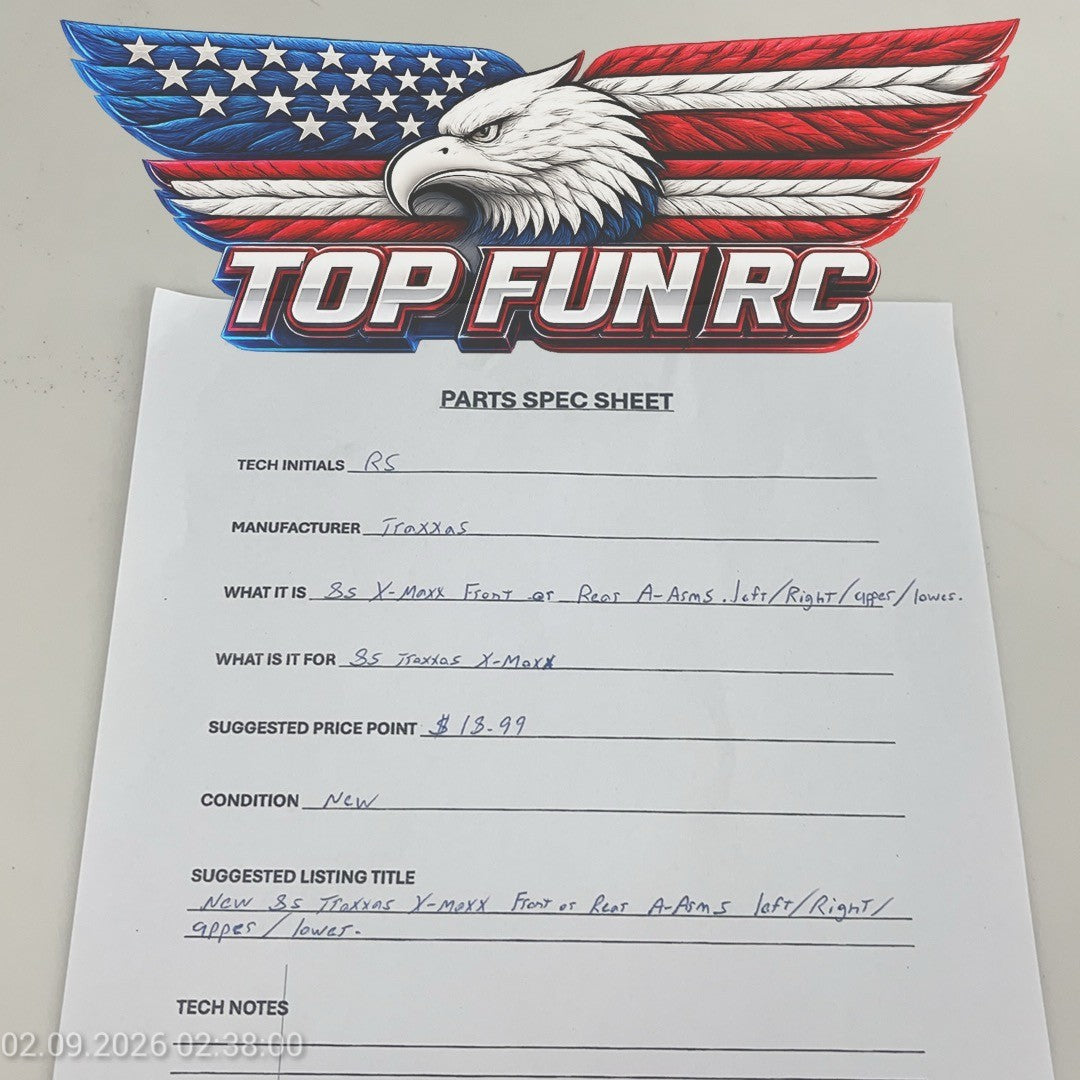 TOP FUN RC
PARTS SPEC SHEET
TECH INITIALS RS
MANUFACTURER Traxxas
WHAT IT IS 8s X-Maxx Front or Rear A-Arms. left/Right/upper/lower.
WHAT IS IT FOR 8s Traxxas X-Maxx
SUGGESTED PRICE POINT $18.99
CONDITION New
SUGGESTED LISTING TITLE
New 8s Traxxas X-Maxx Front or Rear A-Arms left/Right/
upper/lower.
TECH NOTES
02.09.2026 02:38:00